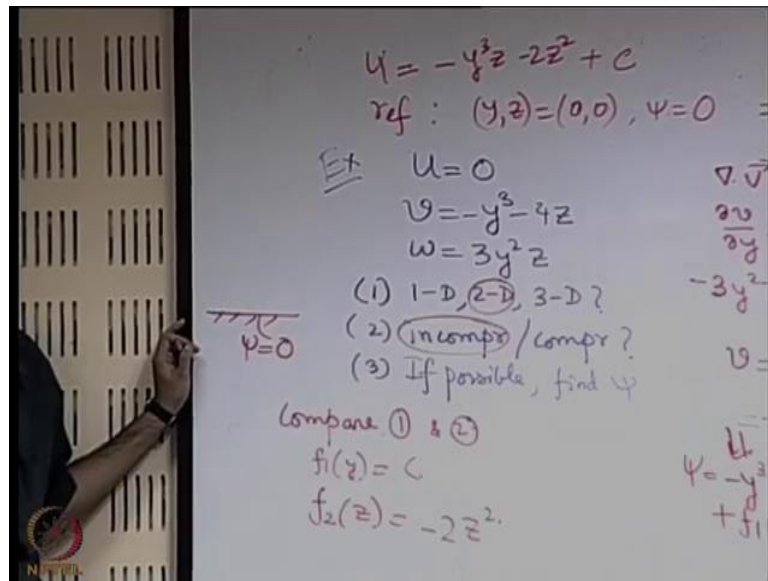 u = -y³z -2z² + c
ref : (y,z)=(0,0), ψ=0 =
Ex u=0
v=-y³-4z
w=3y²z
(1) 1-D, 2-D, 3-D ?
(2) incompr/compr ?
(3) If possible, find ψ
ψ=0
Compare ① & ②
f₁(y) = c
f₂(z) = -2z².
∇.V
∂v
∂y
-3y²
v=
ψ=-y³
+f₁
NPTEL